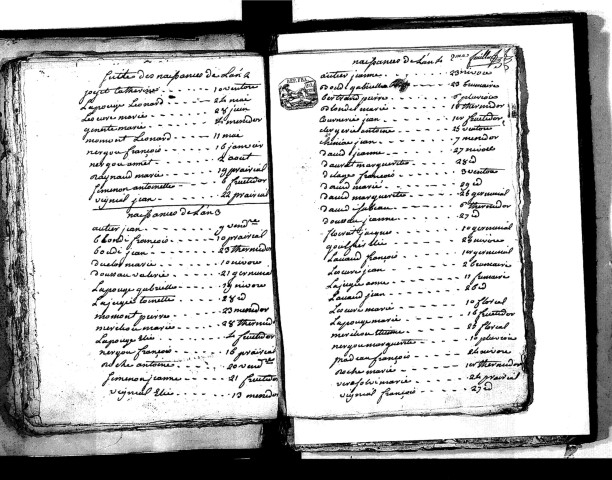 Suitte des naissances de L'an 2
joyet Catherine 10 ventose
Lapouge Leonard 24 mai
Lecure marie 28 juin
gente marie 21 messidor
momont Leonard 11 mai
nergou françois 16 janvier
nergou amiet 2 aout
raynaud marie 19 prairial
simmon antoinette 6 fructidor
veyrival jean 22 prairial
naissances de L'an 3
autier jean 9 vend.re
blondi françois 10 prairial
boudi jean 23 thermidor
duclos marie 10 nivose
dousseau valerie 21 germinal
Lapouge gabriele 19 nivose
Lajugie toinette 28 id
momont pierre 23 messidor
merilhou marie 28 thermidor
Lapouge Elie 4 fructidor
nergou françois 16 prairial
roche antoine 20 vend.re
simmon jeanne 21 fructidor
veyrival Elie 13 messidor
naissances de L'an 4
autier jeanne 23 nivose
bodi gabrielle 23 brumaire
bertrand pierre 6 pluviose
blondel marie 16 thermidor
jean 1er fructidor
clergerie antoine 25 ventose
jean 7 messidor
daud jeanne 27 nivose
daurat marguerite 28 id
delage françois 3 ventose
daud marie 29 id
daud marguerite 26 germinal
daud 6 thermidor
dousseau jeanne 27 id
florat jacques 10 germinal
Elie 22 nivose
Lauaud françois 1er germinal
Lecuré jean 2 brumaire
Lajugie anne 11 frimaire
Lauaud jean 26 id
Lecuré marie 10 floreal
Lapouge marie 16 fructidor
merilhou 23 floreal
nergou marguerite 10 pluviose
pradeau françois 24 nivose
roche marie 1er thermidor
marie 24 prairial
veyrival françois 27 id